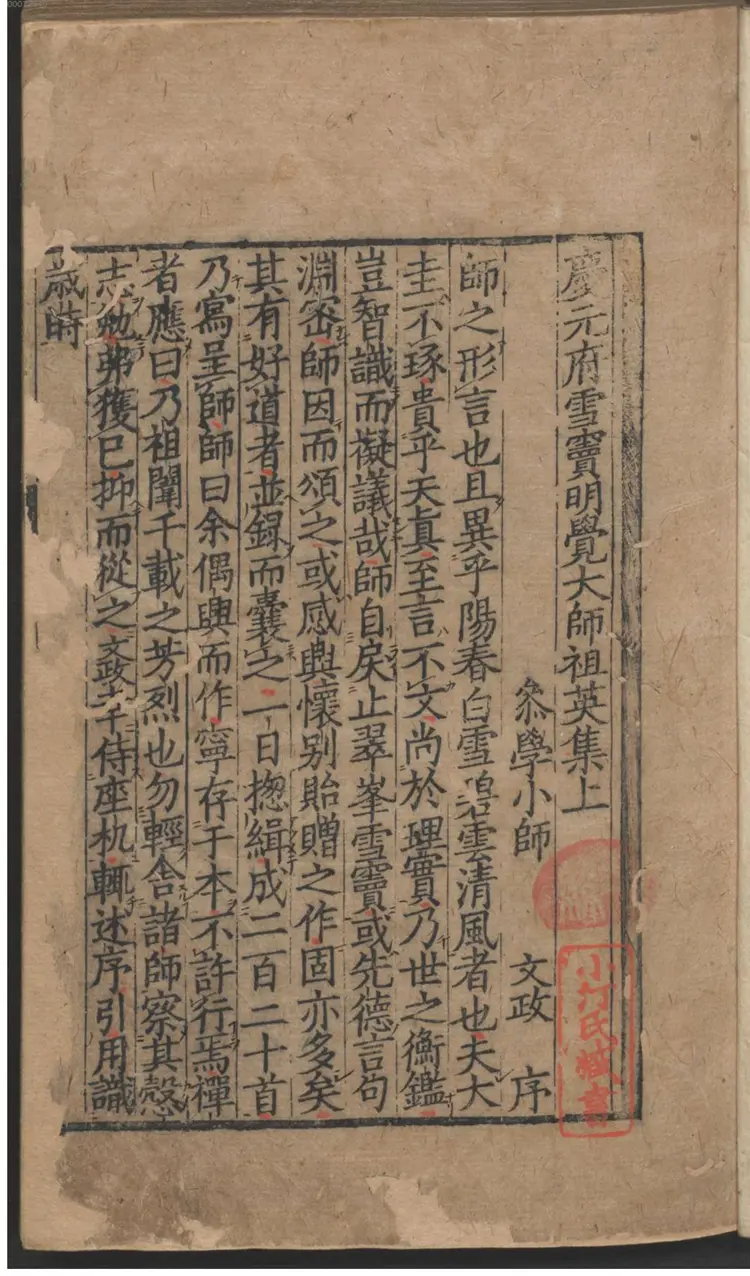 慶元府雪竇明覺大師祖英集上
叅學小師 文政 序
師之形言也且異乎陽春白雪碧雲清風者也夫大
圭不琢貴乎天真至言不文尚於理實乃世之衡鑑
豈智識而擬議哉師自戾止翠峯雪竇或先德言句
淵密師因而頌之或感興懷别貽贈之作固亦多矣
其有好道者並録而囊之一日揔緝成二百二十首
乃寫呈師師曰余偶興而作寧存于本不許行焉禪
者應曰乃祖闈千載之芳烈也勿輕舎諸師察其慤
志勉弗獲已抑而從之文政忝侍座机輒述序引用識
歳時
小汀氏蔵書